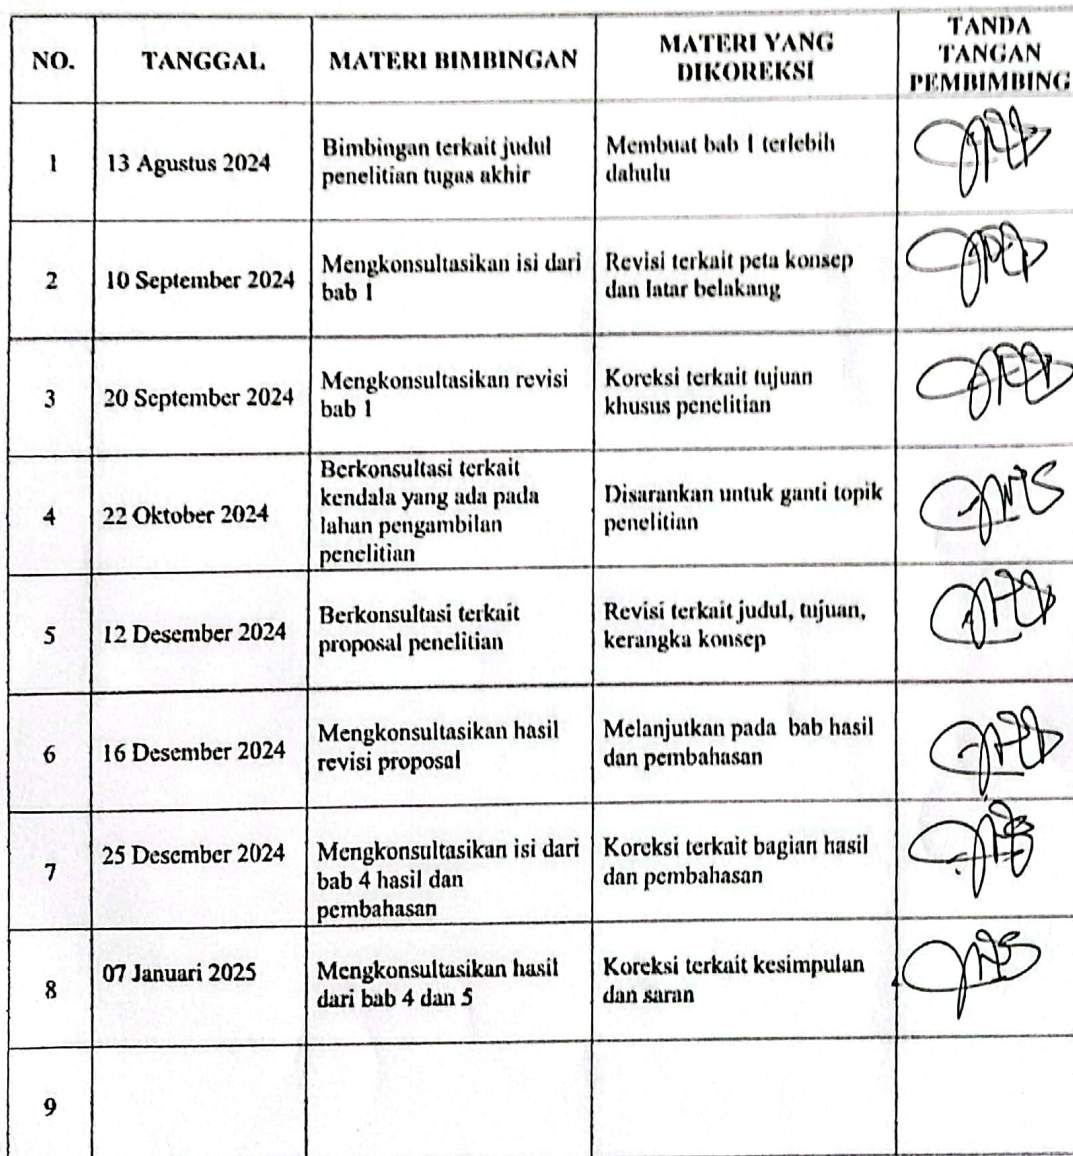 NO.
TANGGAL
MATERI BIMBINGAN
MATERI YANG
DIKOREKSI
TANDA
TANGAN
PEMBIMBING
1
13 Agustus 2024
Bimbingan terkait judul
penelitian tugas akhir
Membuat bab 1 terlebih
dahulu
2
10 September 2024
Mengkonsultasikan isi dari
bab 1
Revisi terkait peta konsep
dan latar belakang
3
20 September 2024
Mengkonsultasikan revisi
bab 1
Koreksi terkait tujuan
khusus penelitian
4
22 Oktober 2024
Berkonsultasi terkait
kendala yang ada pada
lahan pengambilan
penelitian
Disarankan untuk ganti topik
penelitian
5
12 Desember 2024
Berkonsultasi terkait
proposal penelitian
Revisi terkait judul, tujuan,
kerangka konsep
6
16 Desember 2024
Mengkonsultasikan hasil
revisi proposal
Melanjutkan pada bab hasil
dan pembahasan
7
25 Desember 2024
Mengkonsultasikan isi dari
bab 4 hasil dan
pembahasan
Koreksi terkait bagian hasil
dan pembahasan
8
07 Januari 2025
Mengkonsultasikan hasil
dari bab 4 dan 5
Koreksi terkait kesimpulan
dan saran
9